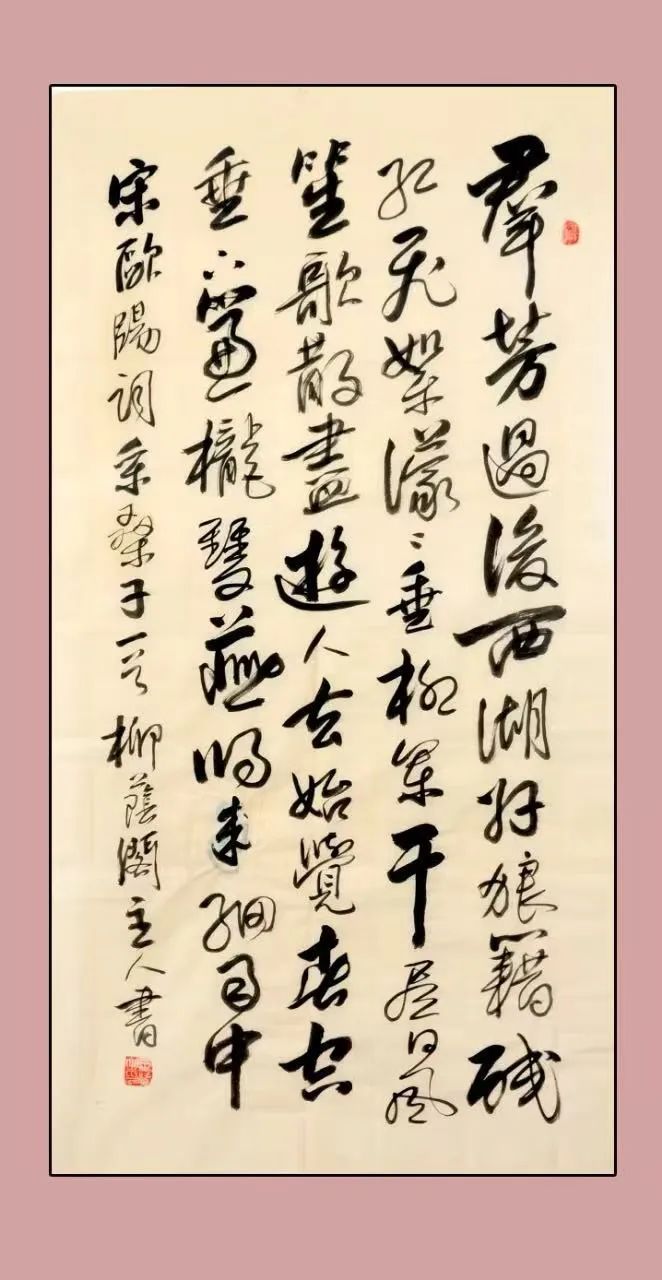 羣芳過後西湖好狼籍殘
紅飛絮濛〻垂柳闌干尽日風
笙歌散盡遊人去始覺春空
垂下簾櫳雙燕歸来細雨中
宋歐陽詞采桑子一首柳蔭閣主人書